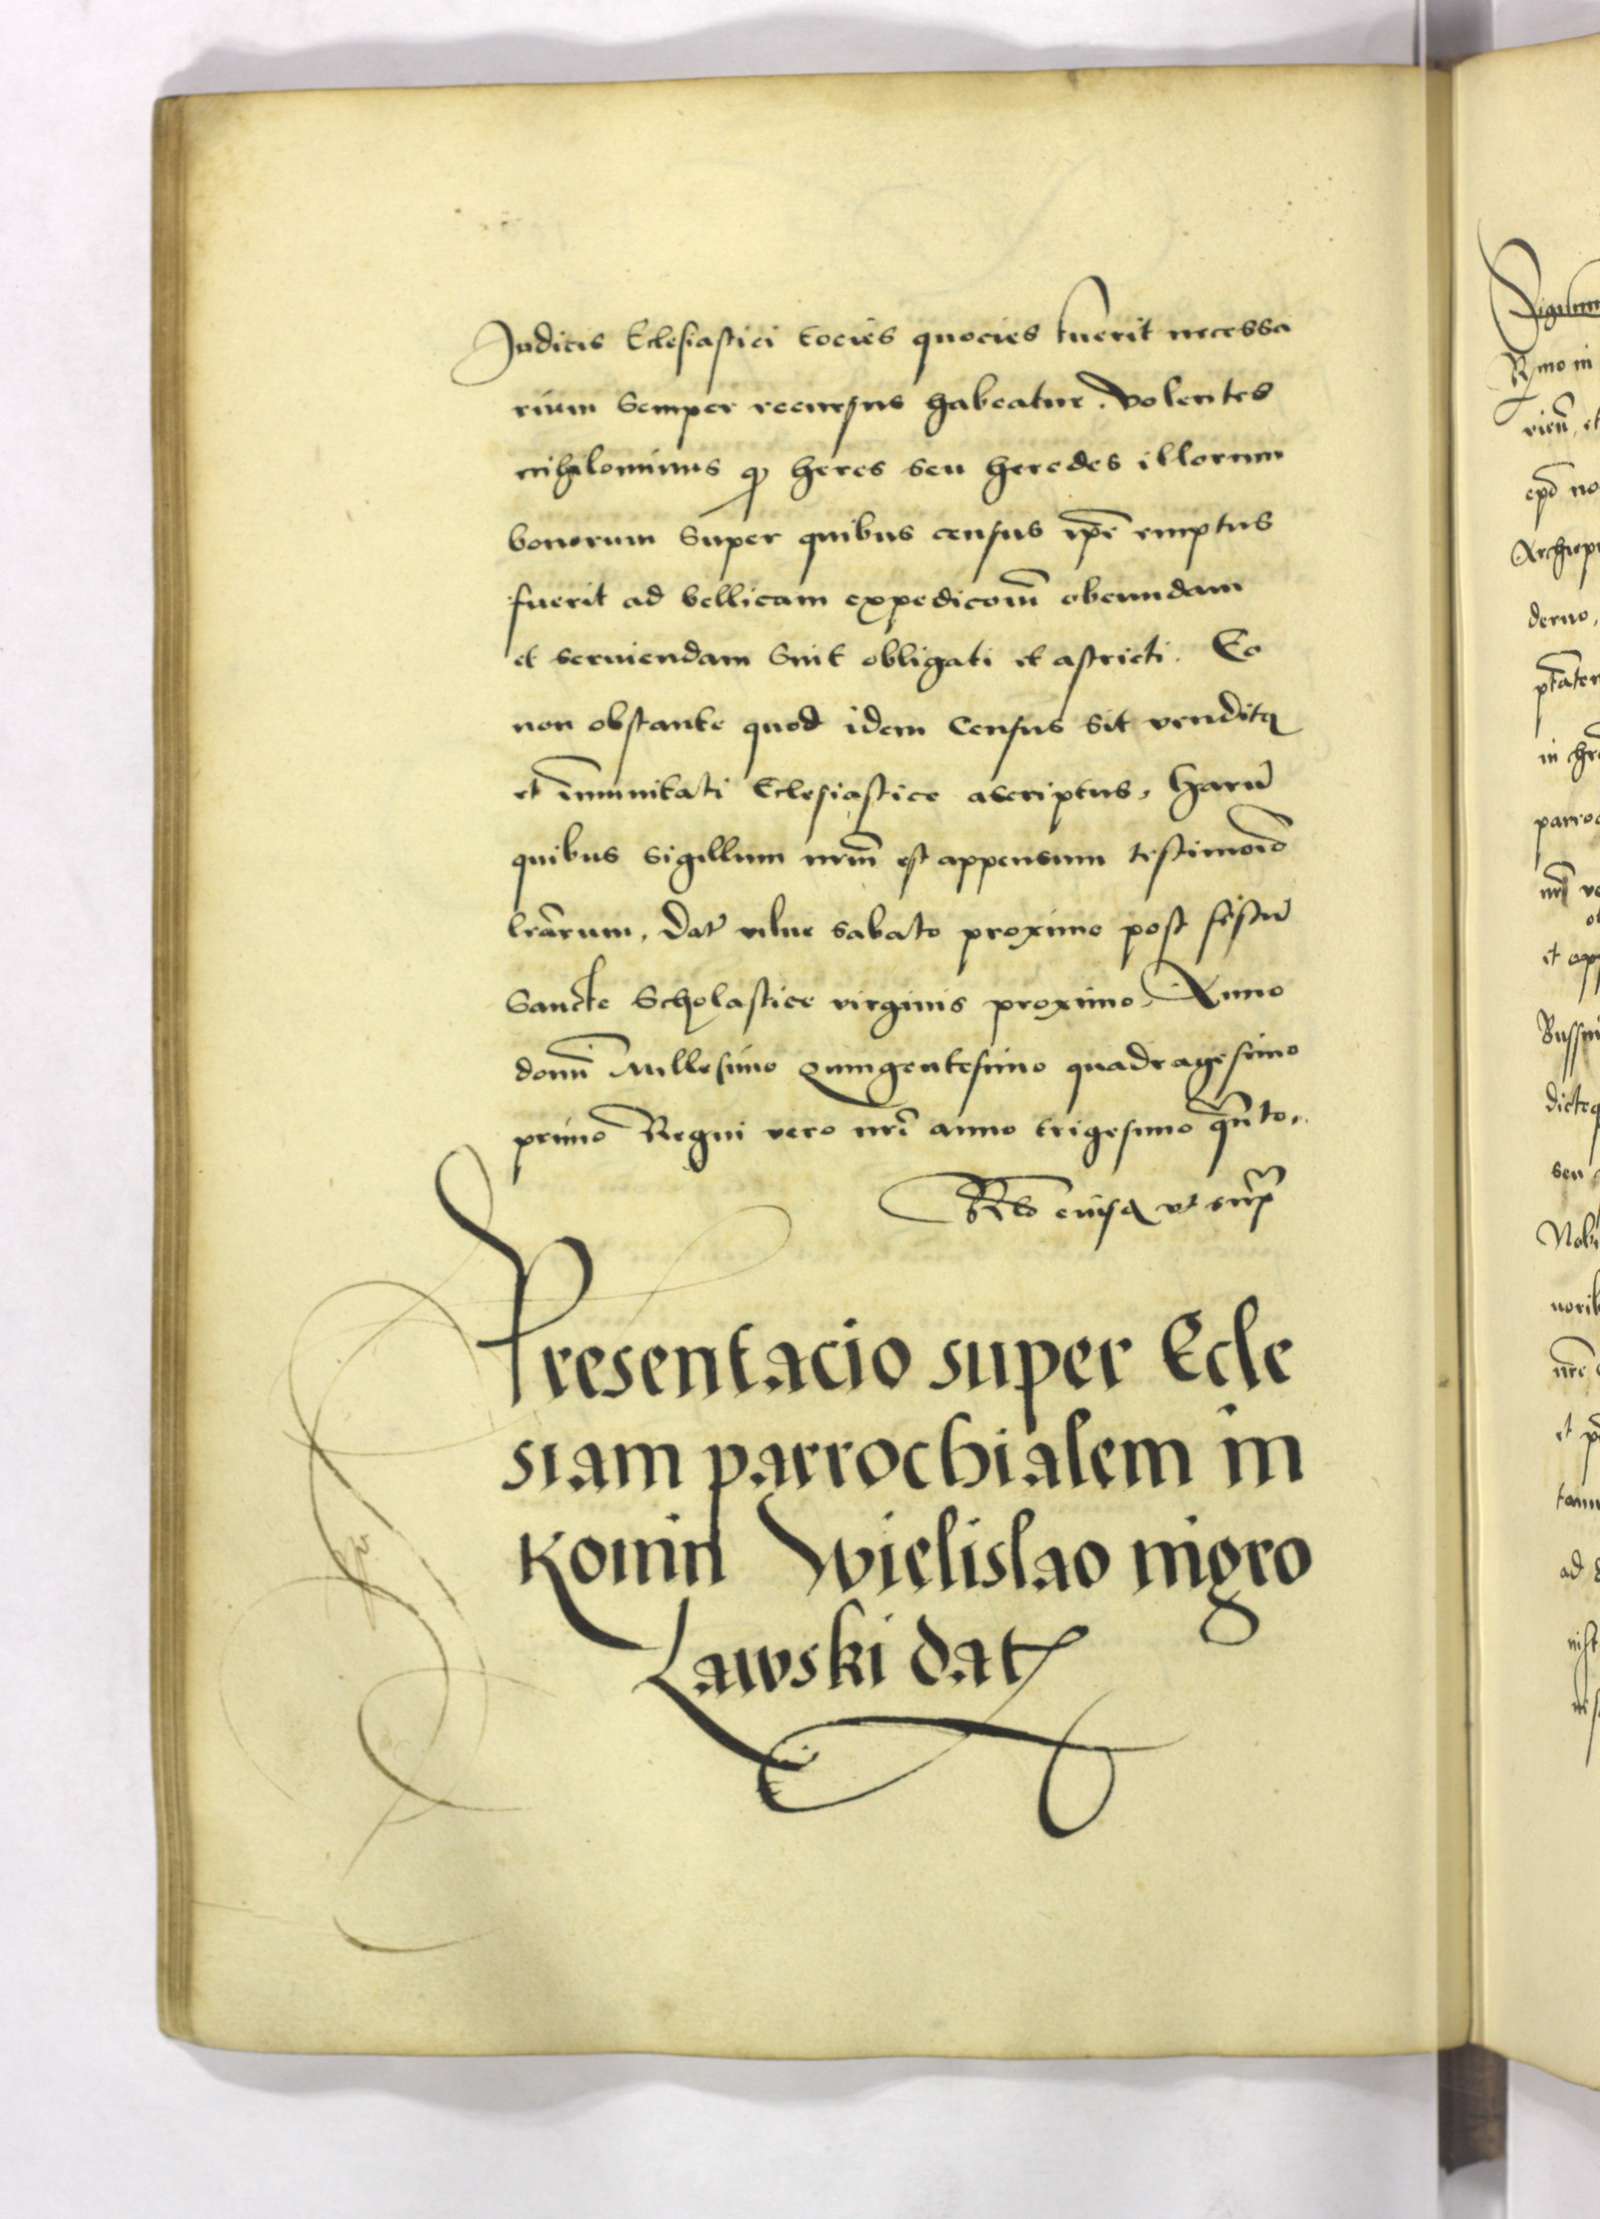 Judicis Eclesiastici tocies quocies fuerit necessa
rium semper recursus habeatur. Volentes
nihilominus qͻ heres seu heredes illorum
bonorum super quibus census ip̄e emptus
fuerit ad bellicam expedicoīm obeundam
et serviendam sint obligati et astricti. Eo
non obstante quod idem Census sit venditꝯ
et īmunitati Eclesiastice ascriptus, harū
quibus sigillum nrm̄ est appensum testimoīo
lrārum, dat̄ vilne sabato proximo post festū
Sancte Scholastice virginis proximo, Anno
domī Millesimo Quingentesimo quadragesimo
primo Regni vero nrī anno trigesimo qu̅to,
Presentacio super Ecle
siam parrochialem in
Konin Wielislao nigro
Lawski dat
Rmo in
et
seu
ad